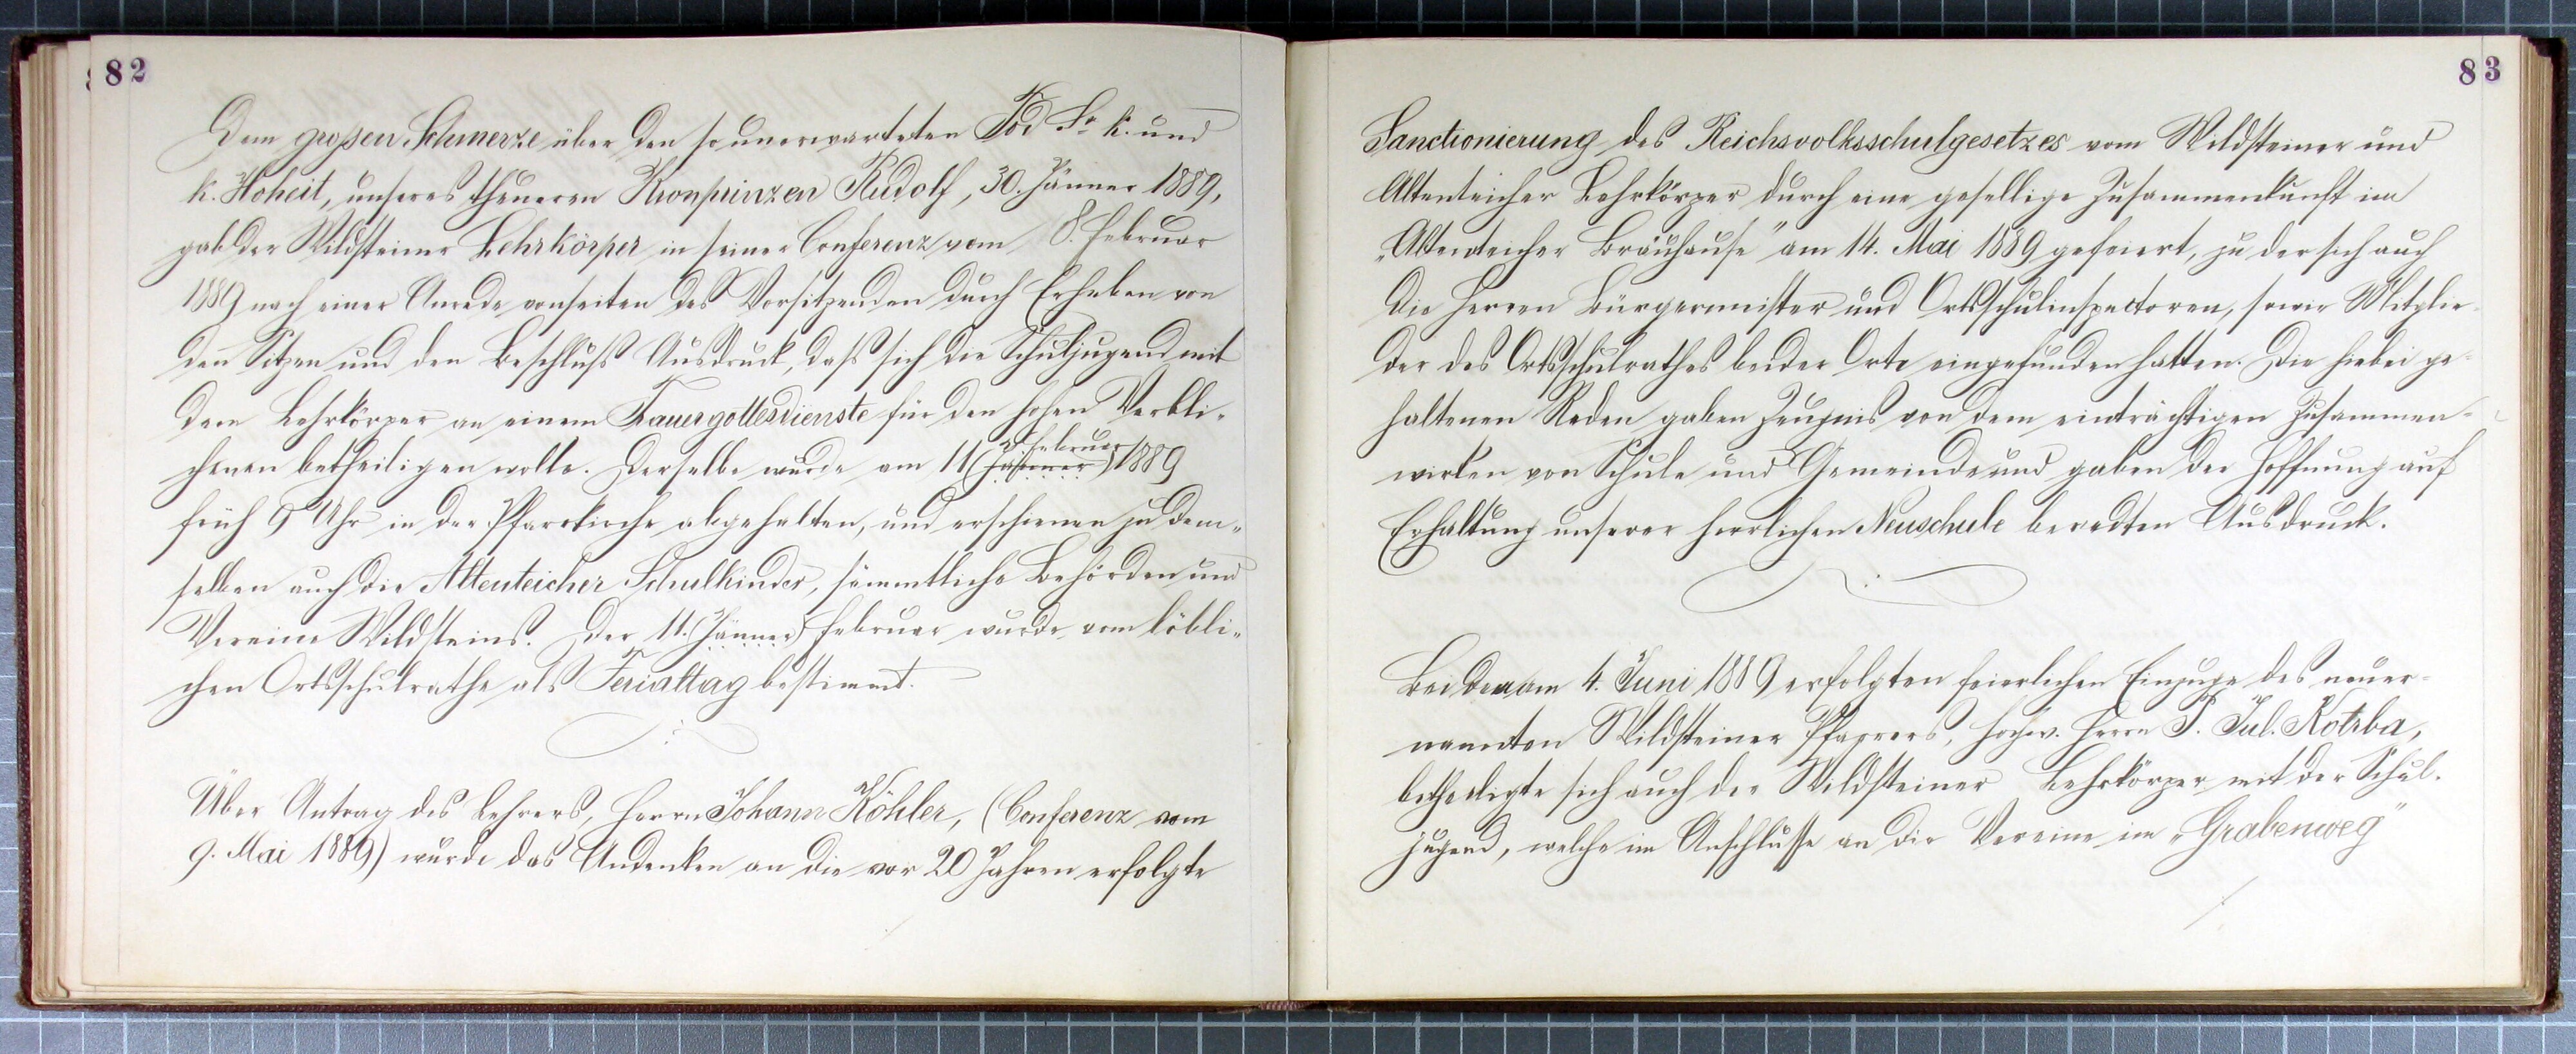 82
Dem großen Schmerze über den so unerwarteten Tod Sr. k. und
k. Hoheit, unseres theueren Kronprinzen Rudolf, 30. Jänner 1889,
gab der Wildsteiner Lehrkörper in seiner Conferenz vom 8. Februar
1889 nach einer Anrede vonseiten des Vorsitzenden durch Erheben von
den Sitzen und den Beschluß Ausdruck, daß sich die Schuljugend mit
dem Lehrkörper an einem Trauergottesdienste für den hohen Verbli-
chenen betheiligen wolle. Derselbe wurde am 11 (Jänner) Februar 1889
früh 9 Uhr in der Pfarrkirche abgehalten, und erschienen zu dem-
selben auch die Altenteicher Schulkinder, sämmtliche Behörden und
Vereine Wildsteins. Der 11. (Jänner) Februar wurde vom löbli-
chen Ortsschulrathe als Ferialtag bestimmt.
Über Antrag des Lehrers, Herrn Johann Köhler, (Conferenz vom
9. Mai 1889) wurde das Andenken an die vor 20 Jahren erfolgte
83
Sanctionierung des Reichsvolksschulgesetzes vom Wildsteiner und
Altenteicher Lehrkörper durch eine gesellige Zusammenkunft im
„Altenteicher Bräuhause" am 14. Mai 1889 gefeiert, zu der sich auch
die Herren Bürgermeister und Ortsschulinspectoren, sowie Mitglie-
der des Ortsschulrathes beider Orte eingefunden hatten. Die hiebei ge-
haltenen Reden gaben Zeugnis von dem einträchtigen Zusammen-
wirken von Schule und Gemeinde und gaben der Hoffnung auf
Erhaltung unserer herrlichen Neuschule beredten Ausdruck.
Bei dem am 4. Juni 1889 erfolgten feierlichen Einzuge des neuer-
nannten Wildsteiner Pfarrers, hochw. Herrn P. Jul. Kotrba,
betheiligte sich auch der Wildsteiner Lehrkörper mit der Schul-
jugend, welche im Anschlusse an die Vereine im „Grabenweg"